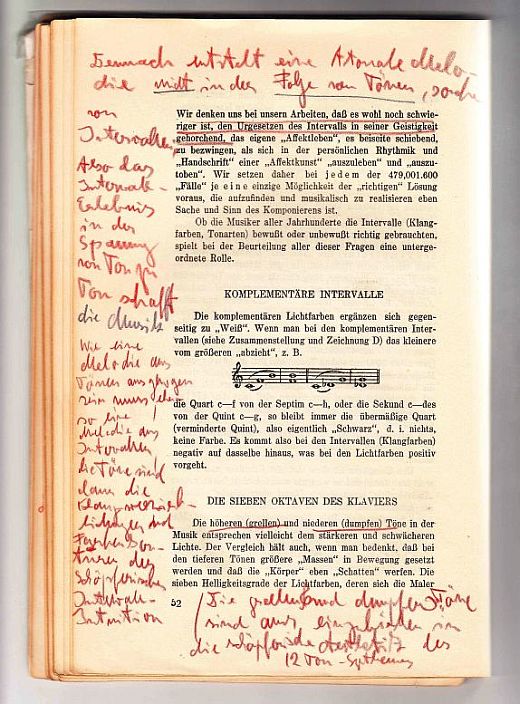 Demnach entsteht eine Atonale Melo-
die nicht in der Folge von Tönen, sondern
von
Intervallen
Also das
Intervall-
Erlebnis
in der
Spannung
von Ton zu
Ton schafft
die Musik
Wie eine
Melodie aus
Tönen
sein muss
so eine
Melodie aus
Intervallen
die Töne sind
dann die
und
des
Schöpferischen
Intervall-
Intuition
Wir denken uns bei unsern Arbeiten, daß es wohl noch schwie-
riger ist, den Urgesetzen des Intervalls in seiner Geistigkeit
gehorchend, das eigene „Affektleben", es beiseite schiebend,
zu bezwingen, als sich in der persönlichen Rhythmik und
„Handschrift" einer „Affektkunst" „auszuleben" und „auszu-
toben". Wir setzen daher bei jedem der 479,001.600
„Fälle" je eine einzige Möglichkeit der „richtigen" Lösung
voraus, die aufzufinden und musikalisch zu realisieren eben
Sache und Sinn des Komponierens ist.
Ob die Musiker aller Jahrhunderte die Intervalle (Klang-
farben, Tonarten) bewußt oder unbewußt richtig gebrauchten,
spielt bei der Beurteilung aller dieser Fragen eine unterge-
ordnete Rolle.
KOMPLEMENTÄRE INTERVALLE
Die komplementären Lichtfarben ergänzen sich gegen-
seitig zu „Weiß". Wenn man bei den komplementären Inter-
vallen (siehe Zusammenstellung und Zeichnung D) das kleinere
vom größeren „abzieht", z. B.
die Quart c—f von der Septim c—h, oder die Sekund c—des
von der Quint c—g, so bleibt immer die übermäßige Quart
(verminderte Quint), also eigentlich „Schwarz", d. i. nichts,
keine Farbe. Es kommt also bei den Intervallen (Klangfarben)
negativ auf dasselbe hinaus, was bei den Lichtfarben positiv
vorgeht.
DIE SIEBEN OKTAVEN DES KLAVIERS
Die höheren (grellen) und niederen (dumpfen) Töne in der
Musik entsprechen vielleicht dem stärkeren und schwächeren
Lichte. Der Vergleich hält auch, wenn man bedenkt, daß bei
den tieferen Tönen größere „Massen" in Bewegung gesetzt
werden und daß die „Körper" eben „Schatten" werfen. Die
sieben Helligkeitsgrade der Lichtfarben, deren sich die Maler
52
Die grellen und dumpfen Töne
sind aus
die schöpferische des
12 Ton-Systemes